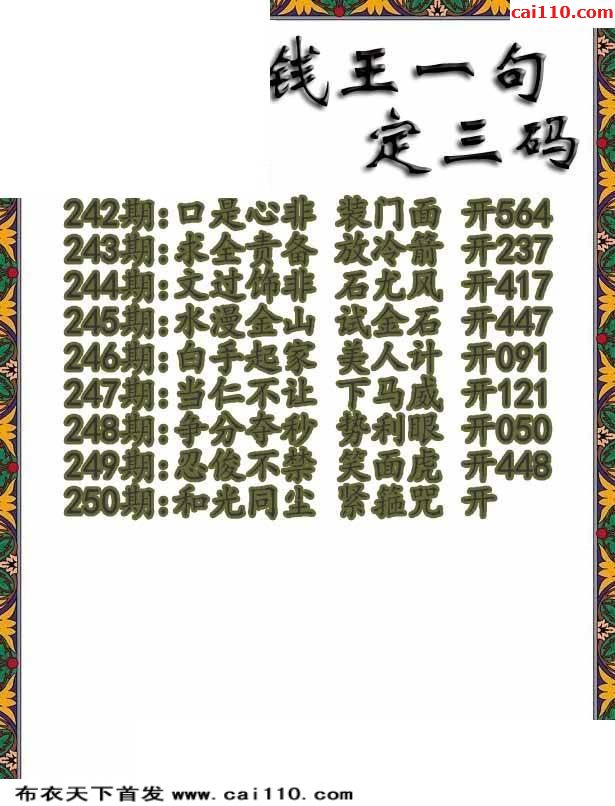 cai110.com
钱王一句
定三码
242期:口是心非 装门面 开564
243期:求全责备 放冷箭 开237
244期:文过饰非 石尤风 开417
245期:水漫金山 试金石 开447
246期:白手起家 美人计 开091
247期:当仁不让 下马威 开121
248期:争分夺秒 势利眼 开050
249期:忍俊不禁 笑面虎 开448
250期:和光同尘 紧箍咒 开
布衣天下首发 www.cai110.com